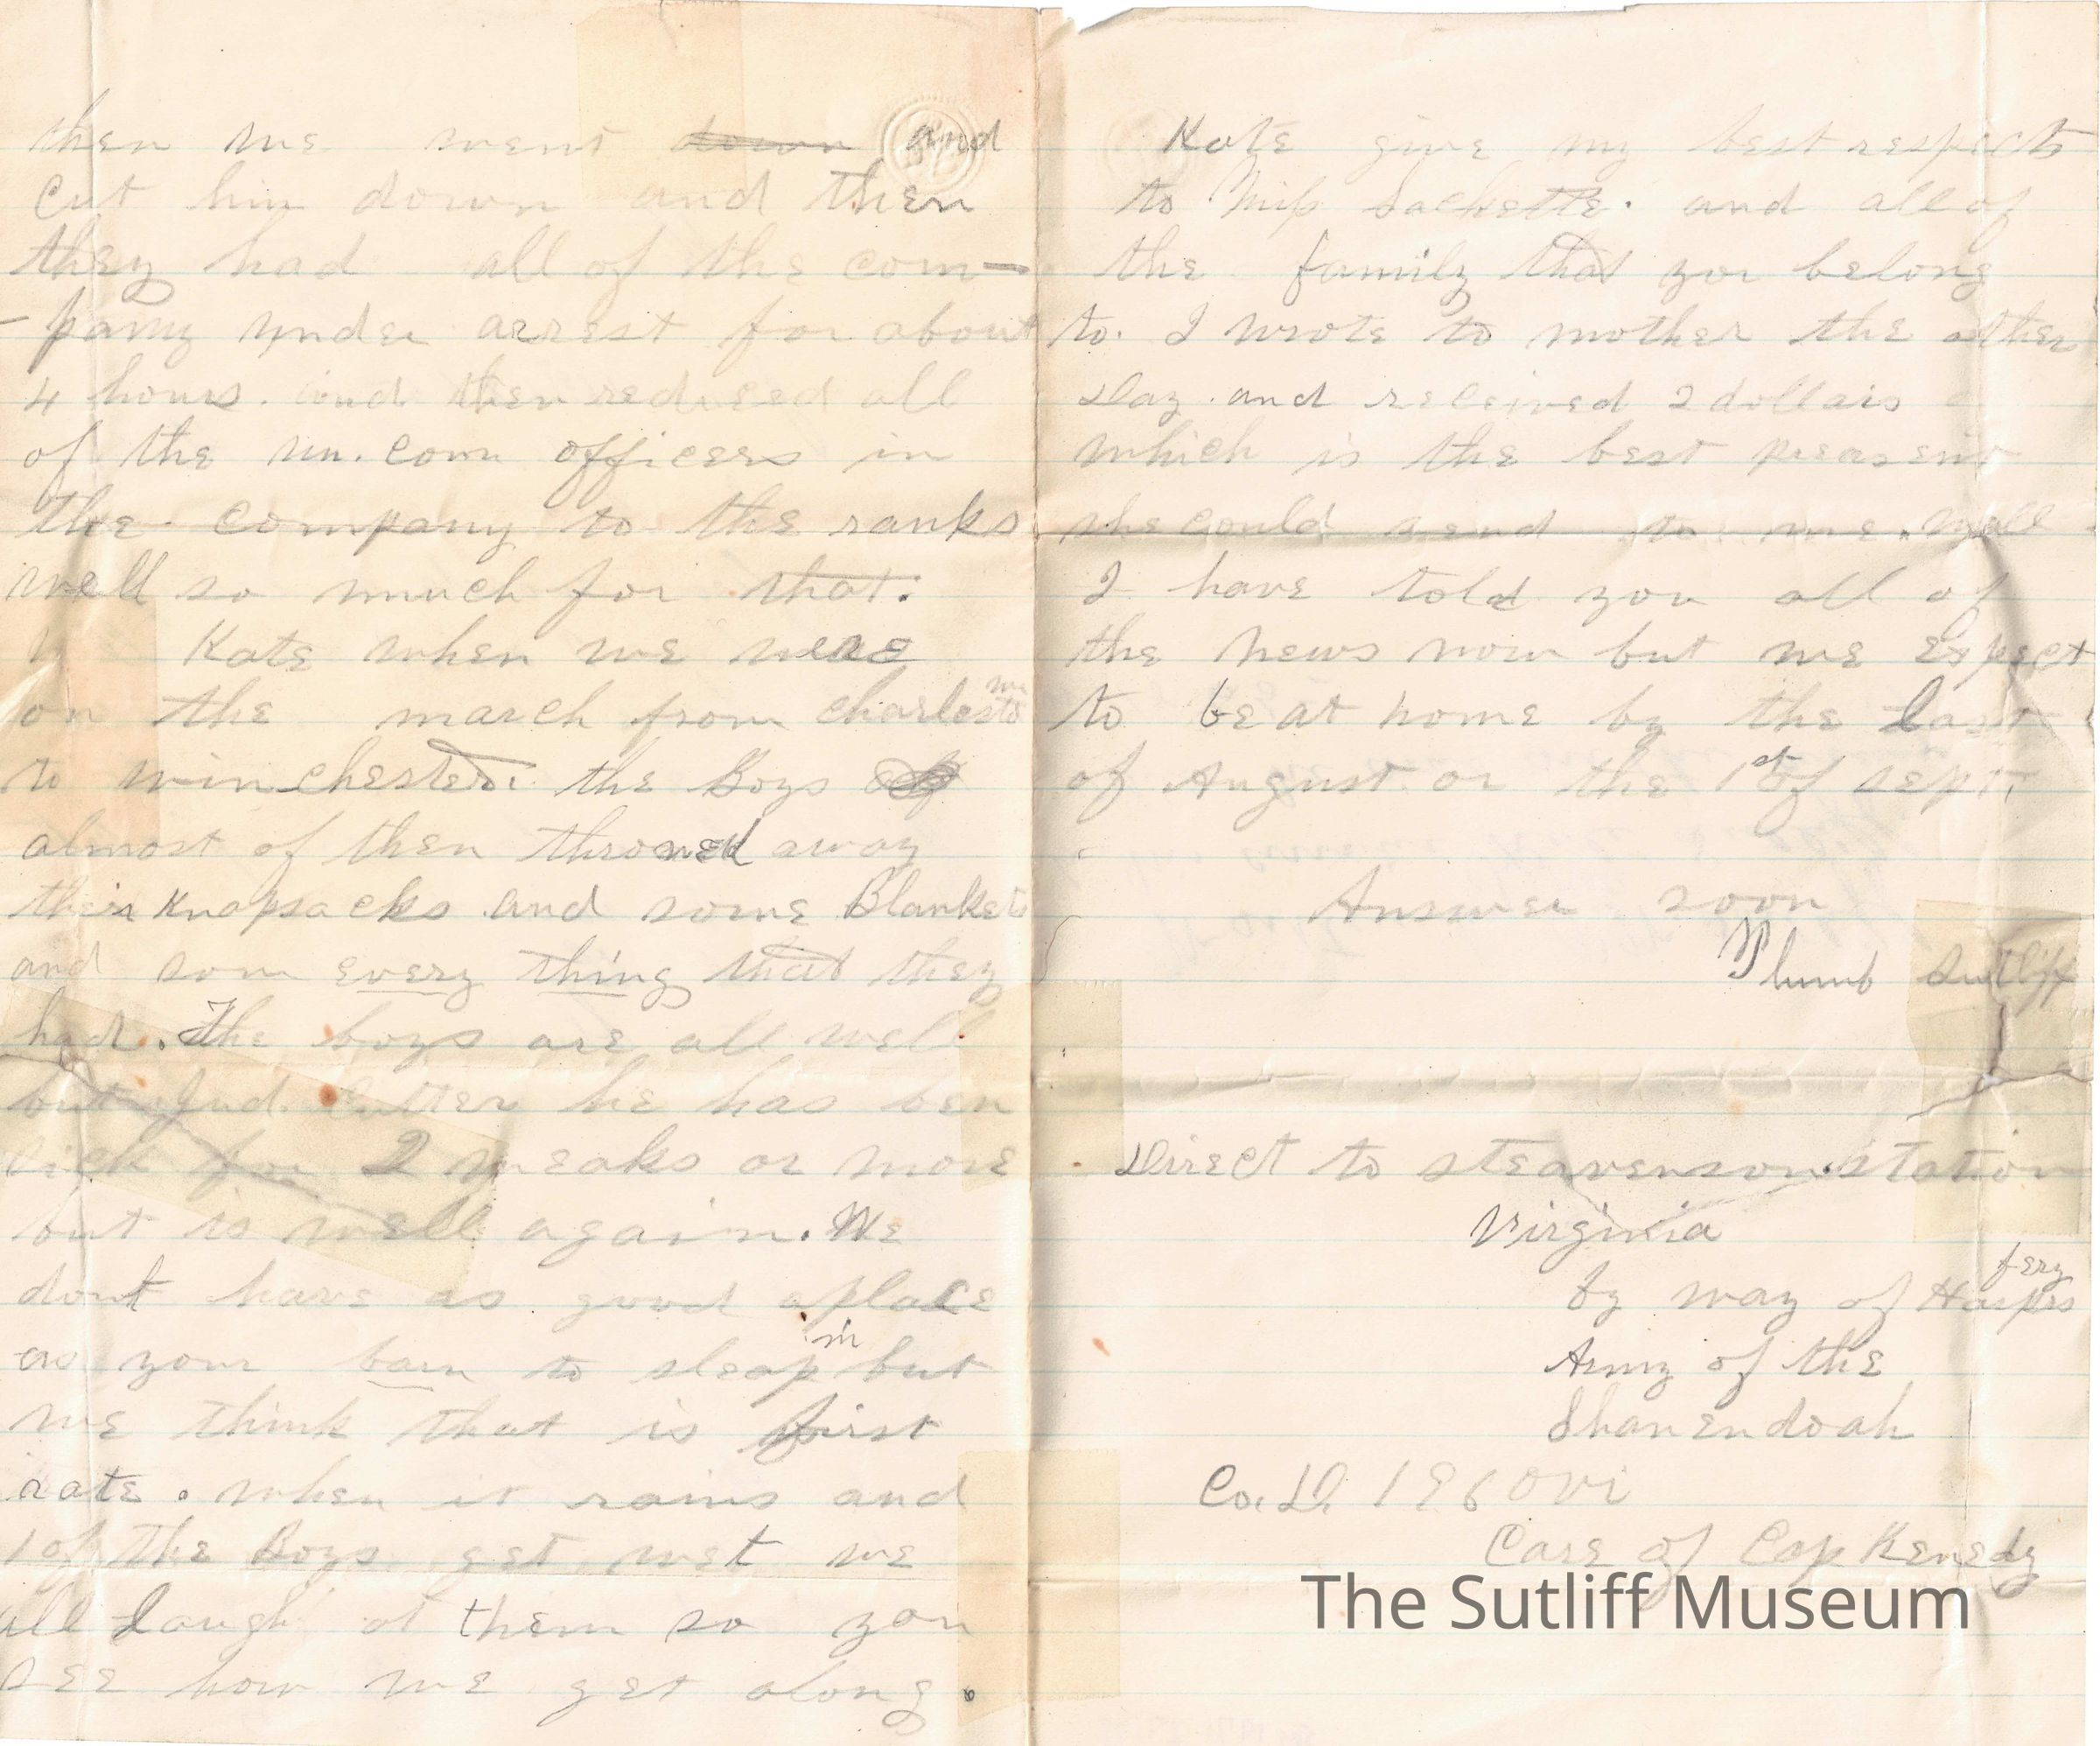 then we went down and
cut him down and then
they had all of the com-
-pany under arrest for about
4 hours. and then reduced all
of the nn. com officers in
the company to the ranks
well so much for that.
Kate when we were
on the march from charlestown
to winchester. the Boys
almost of then throwed away
their Knapsacks and some Blankets
and som every thing that they
had. The boys are all well
but Jud. Cutter he has ben
sick for 2 weaks or more
but is well again. We
dont have as good aplace
as your barn to sleap in but
we think that is first
rate. when it rains and
1 of the Boys get wet we
all laugh at them so you
see how we get along.
Kate give my best respects
to Miss Sackette. and all of
the family that you belong
to. I wrote to mother the other
Day. and received 2 dollars
which is the best preasent
she could send to me. well
I have told you all of
the news now but we Expect
to be at home by the last
of August or the 1st of sept.
Answer soon
Plumb Sutliff
Direct to steavenson station
Virginia
by way of Harpers fery
Army of the
Shanendoah
Co. D. 196 OVI
Care of Cap Kenedy
The Sutliff Museum